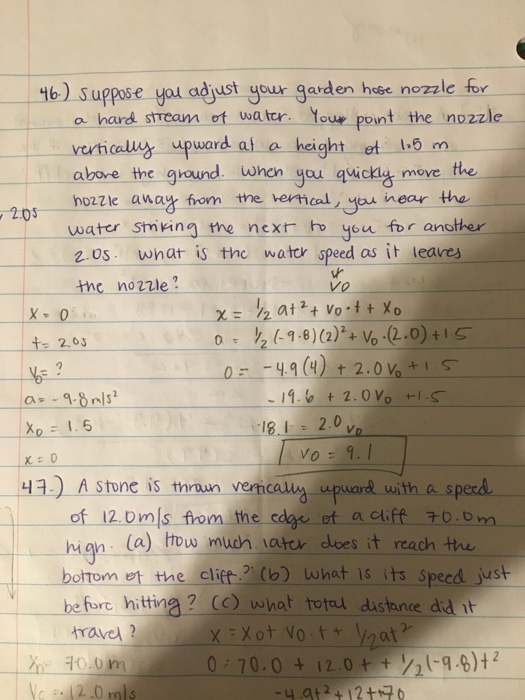 46.) Suppose you adjust your garden hose nozzle for
a hard stream of water. Your point the nozzle
vertically upward at a height of 1.5 m
above the ground. When you quickly move the
nozzle away from the vertical, you hear the
2.0s
water striking the next to you for another
2.0s. What is the water speed as it leaves
the nozzle?
V0
X = 0
x = 1/2 at² + V0·t + X0
t = 2.0s
0 = 1/2 (-9.8)(2)² + V0·(2.0) + 1.5
V0 = ?
0 = -4.9(4) + 2.0V0 + 1.5
a = -9.8m/s²
-19.6 + 2.0V0 + 1.5
X0 = 1.5
18.1 = 2.0V0
x = 0
V0 = 9.1
47.) A stone is thrown vertically upward with a speed
of 12.0m/s from the edge of a cliff 70.0m
high. (a) How much later does it reach the
bottom of the cliff? (b) what is its speed just
before hitting? (c) what total distance did it
travel?
x = X0 + V0·t + 1/2at²
X0= 70.0m
0 = 70.0 + 12.0t + 1/2(-9.8)t²
V0 = 12.0m/s
-4.9t² + 12t+70